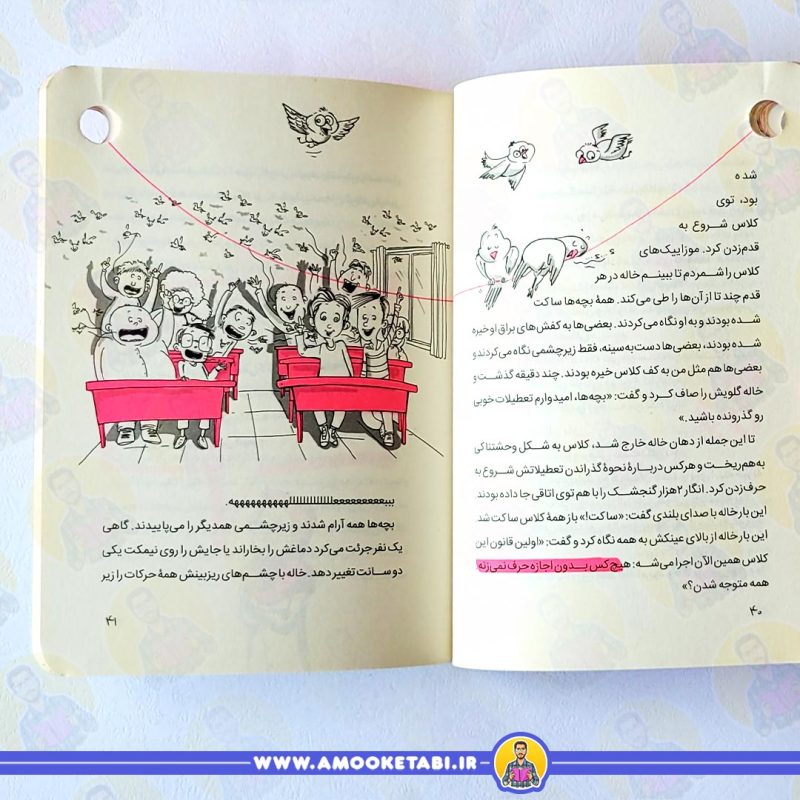 شده
بود، توی
کلاس شروع به
قدم‌زدن کرد. موزاییک‌های
کلاس را شمردم تا ببینم خاله در هر
قدم چند تا از آن‌ها را طی می‌کند. همهٔ بچه‌ها ساکت
شده بودند و به او نگاه می‌کردند. بعضی‌ها به کفش‌های براق او خیره
شده بودند، بعضی‌ها دست‌به‌سینه، فقط زیرچشمی نگاه می‌کردند و
بعضی‌ها هم مثل من به کف کلاس خیره بودند. چند دقیقه گذشت و
خاله گلویش را صاف کرد و گفت: «بچه‌ها، امیدوارم تعطیلات خوبی
رو گذرونده باشید.»
تا این جمله از دهان خاله خارج شد، کلاس به شکل وحشتناکی
به‌هم‌ریخت و هرکس دربارهٔ نحوهٔ گذراندن تعطیلاتش شروع به
حرف‌زدن کرد. انگار ۲هزار گنجشک را با هم توی اتاقی جا داده بودند
این بار خاله با صدای بلندی گفت: «ساکت!» باز همهٔ کلاس ساکت شد
این بار خاله از بالای عینکش به همه نگاه کرد و گفت: «اولین قانون این
کلاس همین الآن اجرا می‌شه: هیچ‌کس بدون اجازه حرف نمی‌زنه
همه متوجه شدن؟»
۴۰
بچه‌ها همه آرام شدند و زیرچشمی همدیگر را می‌پاییدند. گاهی
یک نفر جرئت می‌کرد دماغش را بخاراند یا جایش را روی نیمکت یکی
دو سانت تغییر دهد. خاله با چشم‌های ریزبینش همهٔ حرکات را زیر
۴۱
WWW.AMOOKETABI.IR